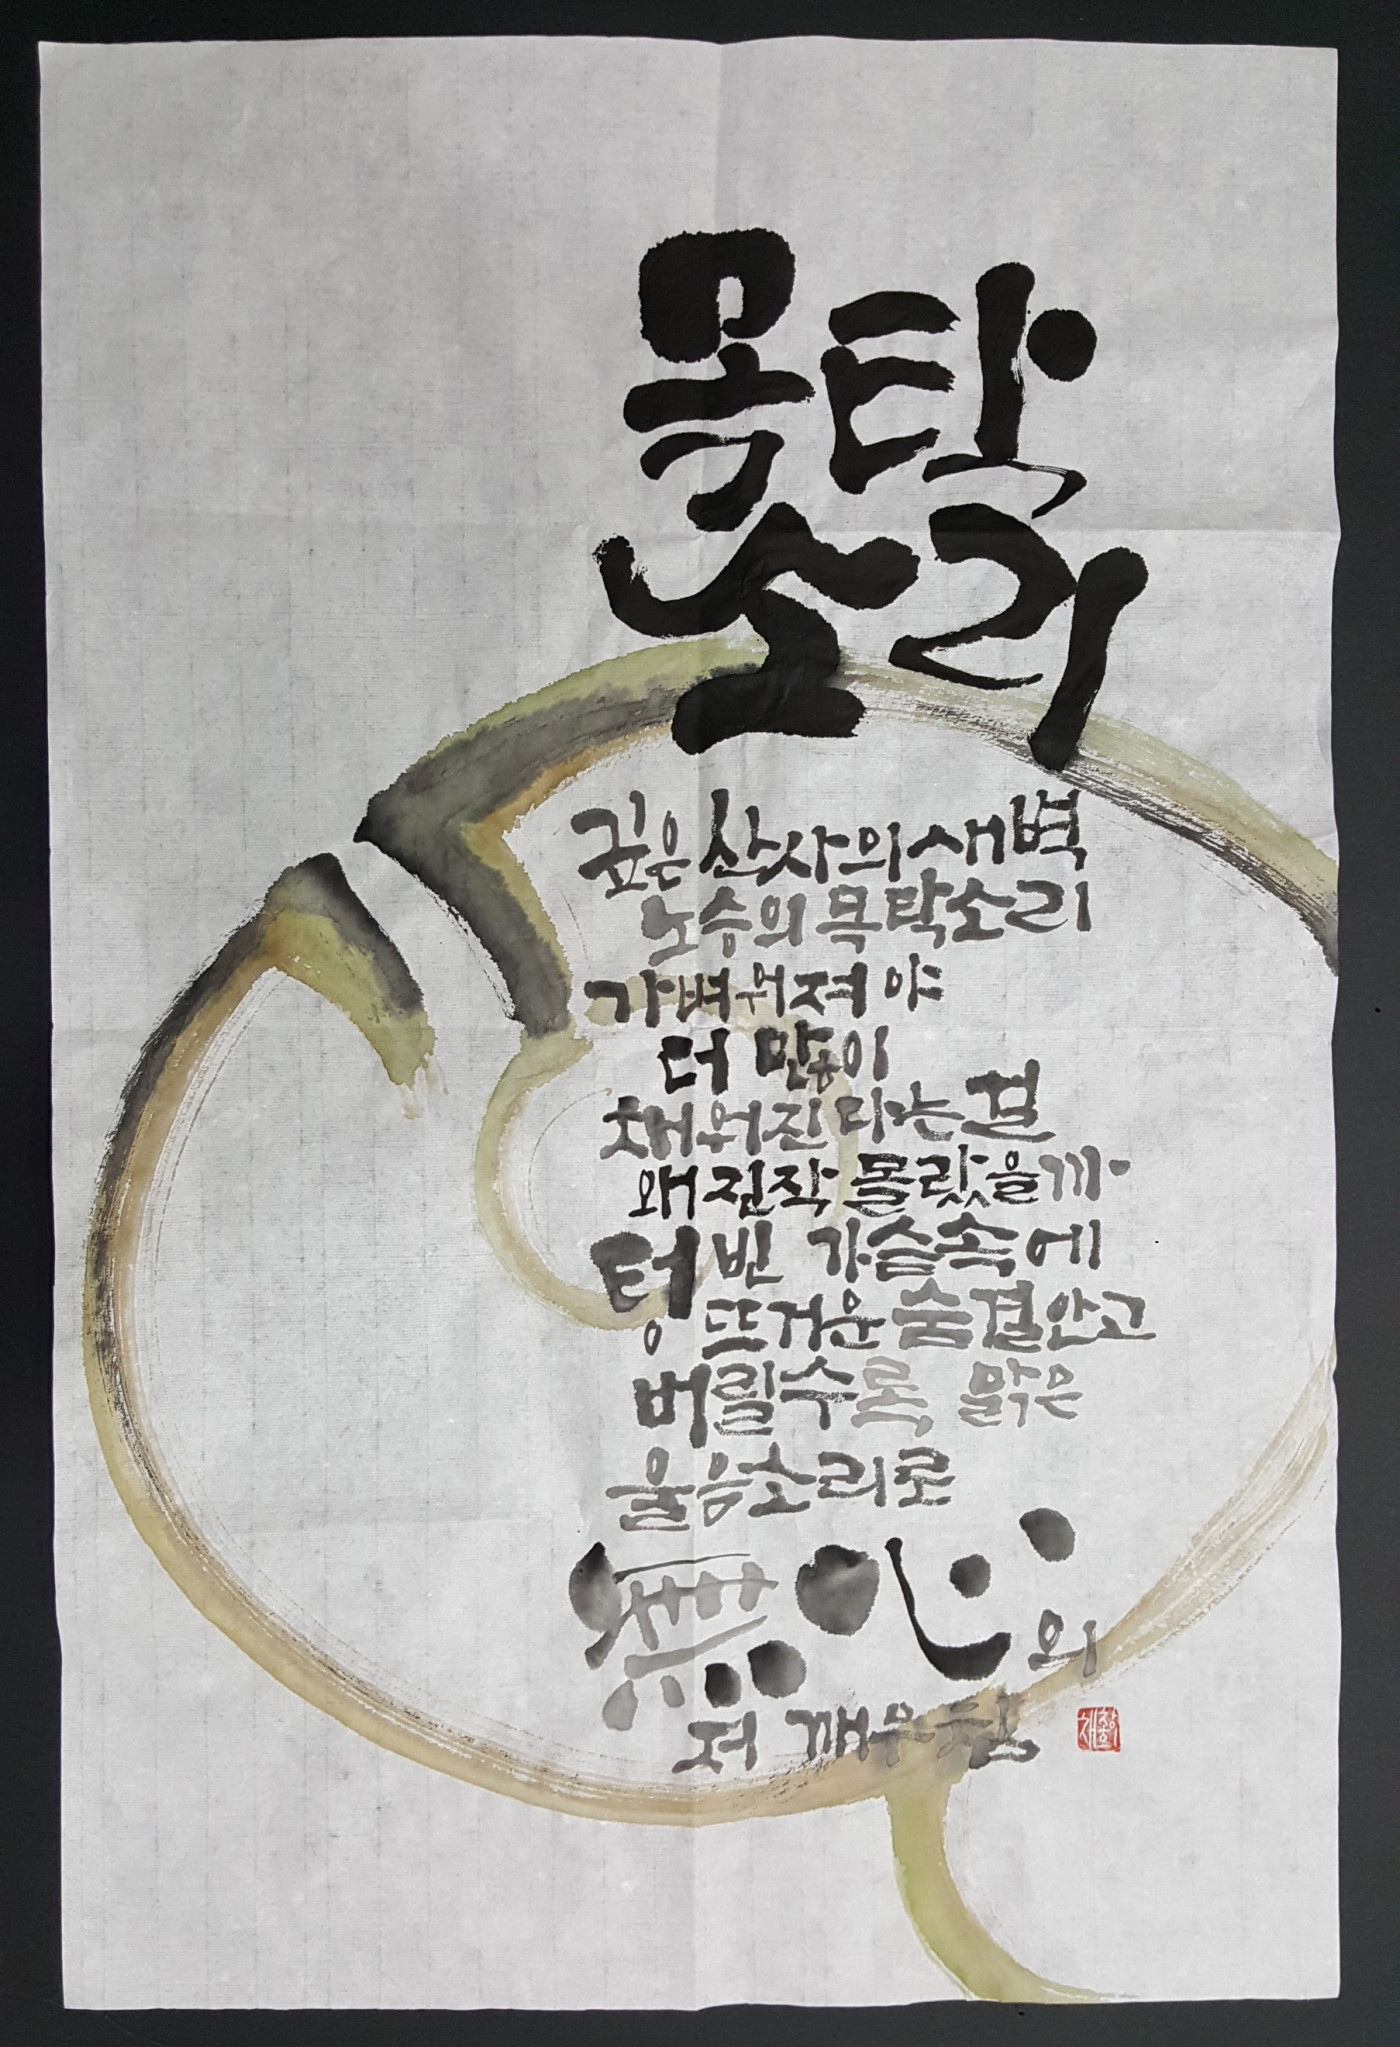 목탁
소리
깊은 산사의 새벽
노승의 목탁소리
가벼워져야
더 많이
채워진다는걸
왜 진작 몰랐을까
텅 빈 가슴속에
뜨거운 숨결안고
버릴수록 맑은
울음소리로
無心의
저 깨우침